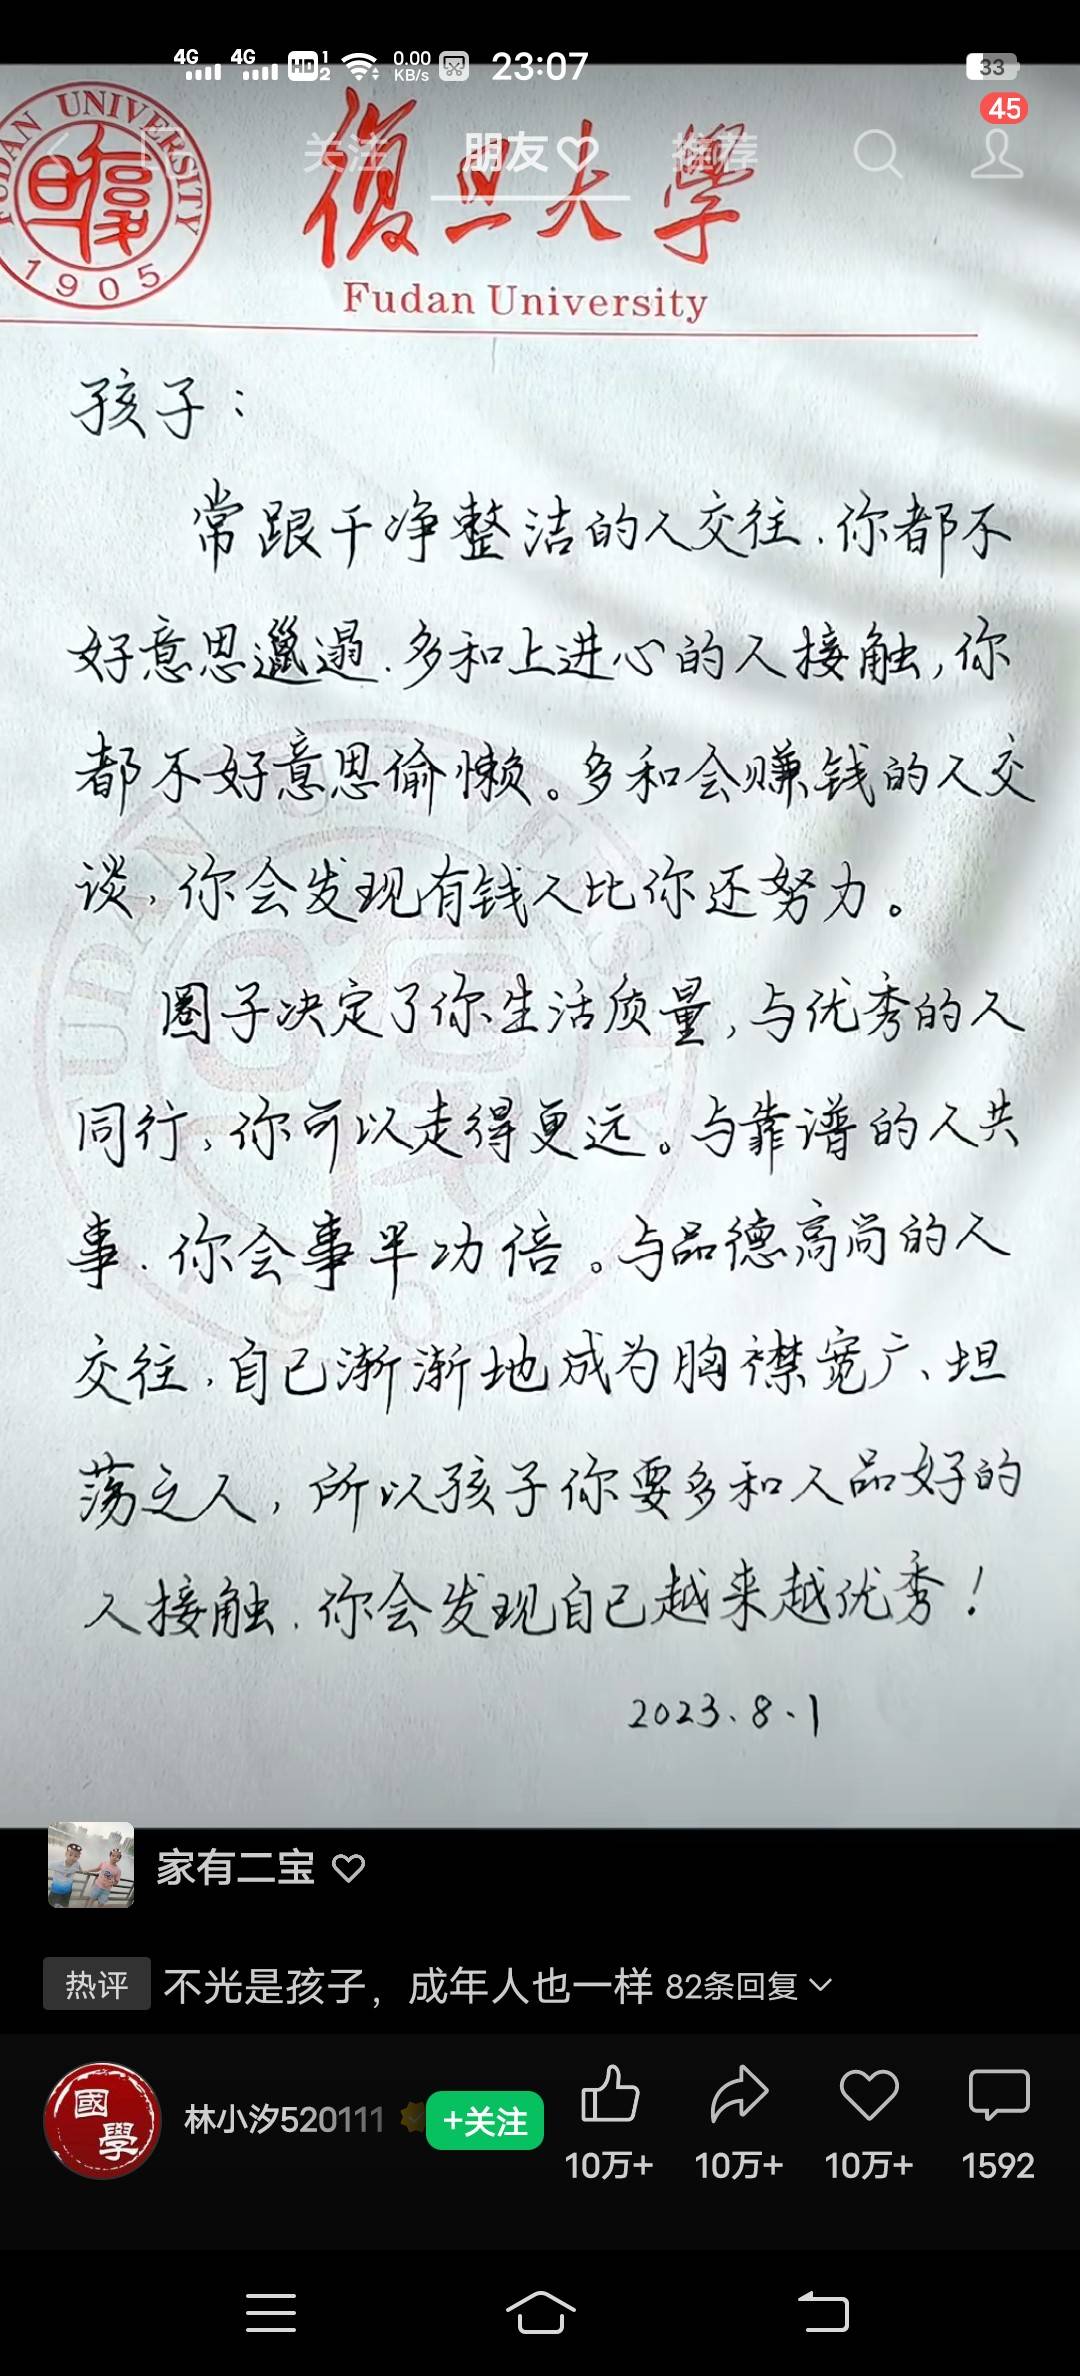 4G 4G HD 1 2 0.00 KB/s 23:07 33
45
关注 朋友♡ 推荐
FUDAN UNIVERSITY
1905
復旦大學
Fudan University
孩子：
常跟干净整洁的人交往.你都不
好意思邋遢.多和上进心的人接触,你
都不好意思偷懒。多和会赚钱的人交
谈,你会发现有钱人比你还努力。
圈子决定了你生活质量,与优秀的人
同行,你可以走得更远。与靠谱的人共
事.你会事半功倍。与品德高尚的人
交往,自己渐渐地成为胸襟宽广、坦
荡之人,所以孩子你要多和人品好的
人接触.你会发现自己越来越优秀！
2023.8.1
家有二宝♡
热评 不光是孩子，成年人也一样 82条回复
國學
林小汐520111 +关注
10万+ 10万+ 10万+ 1592